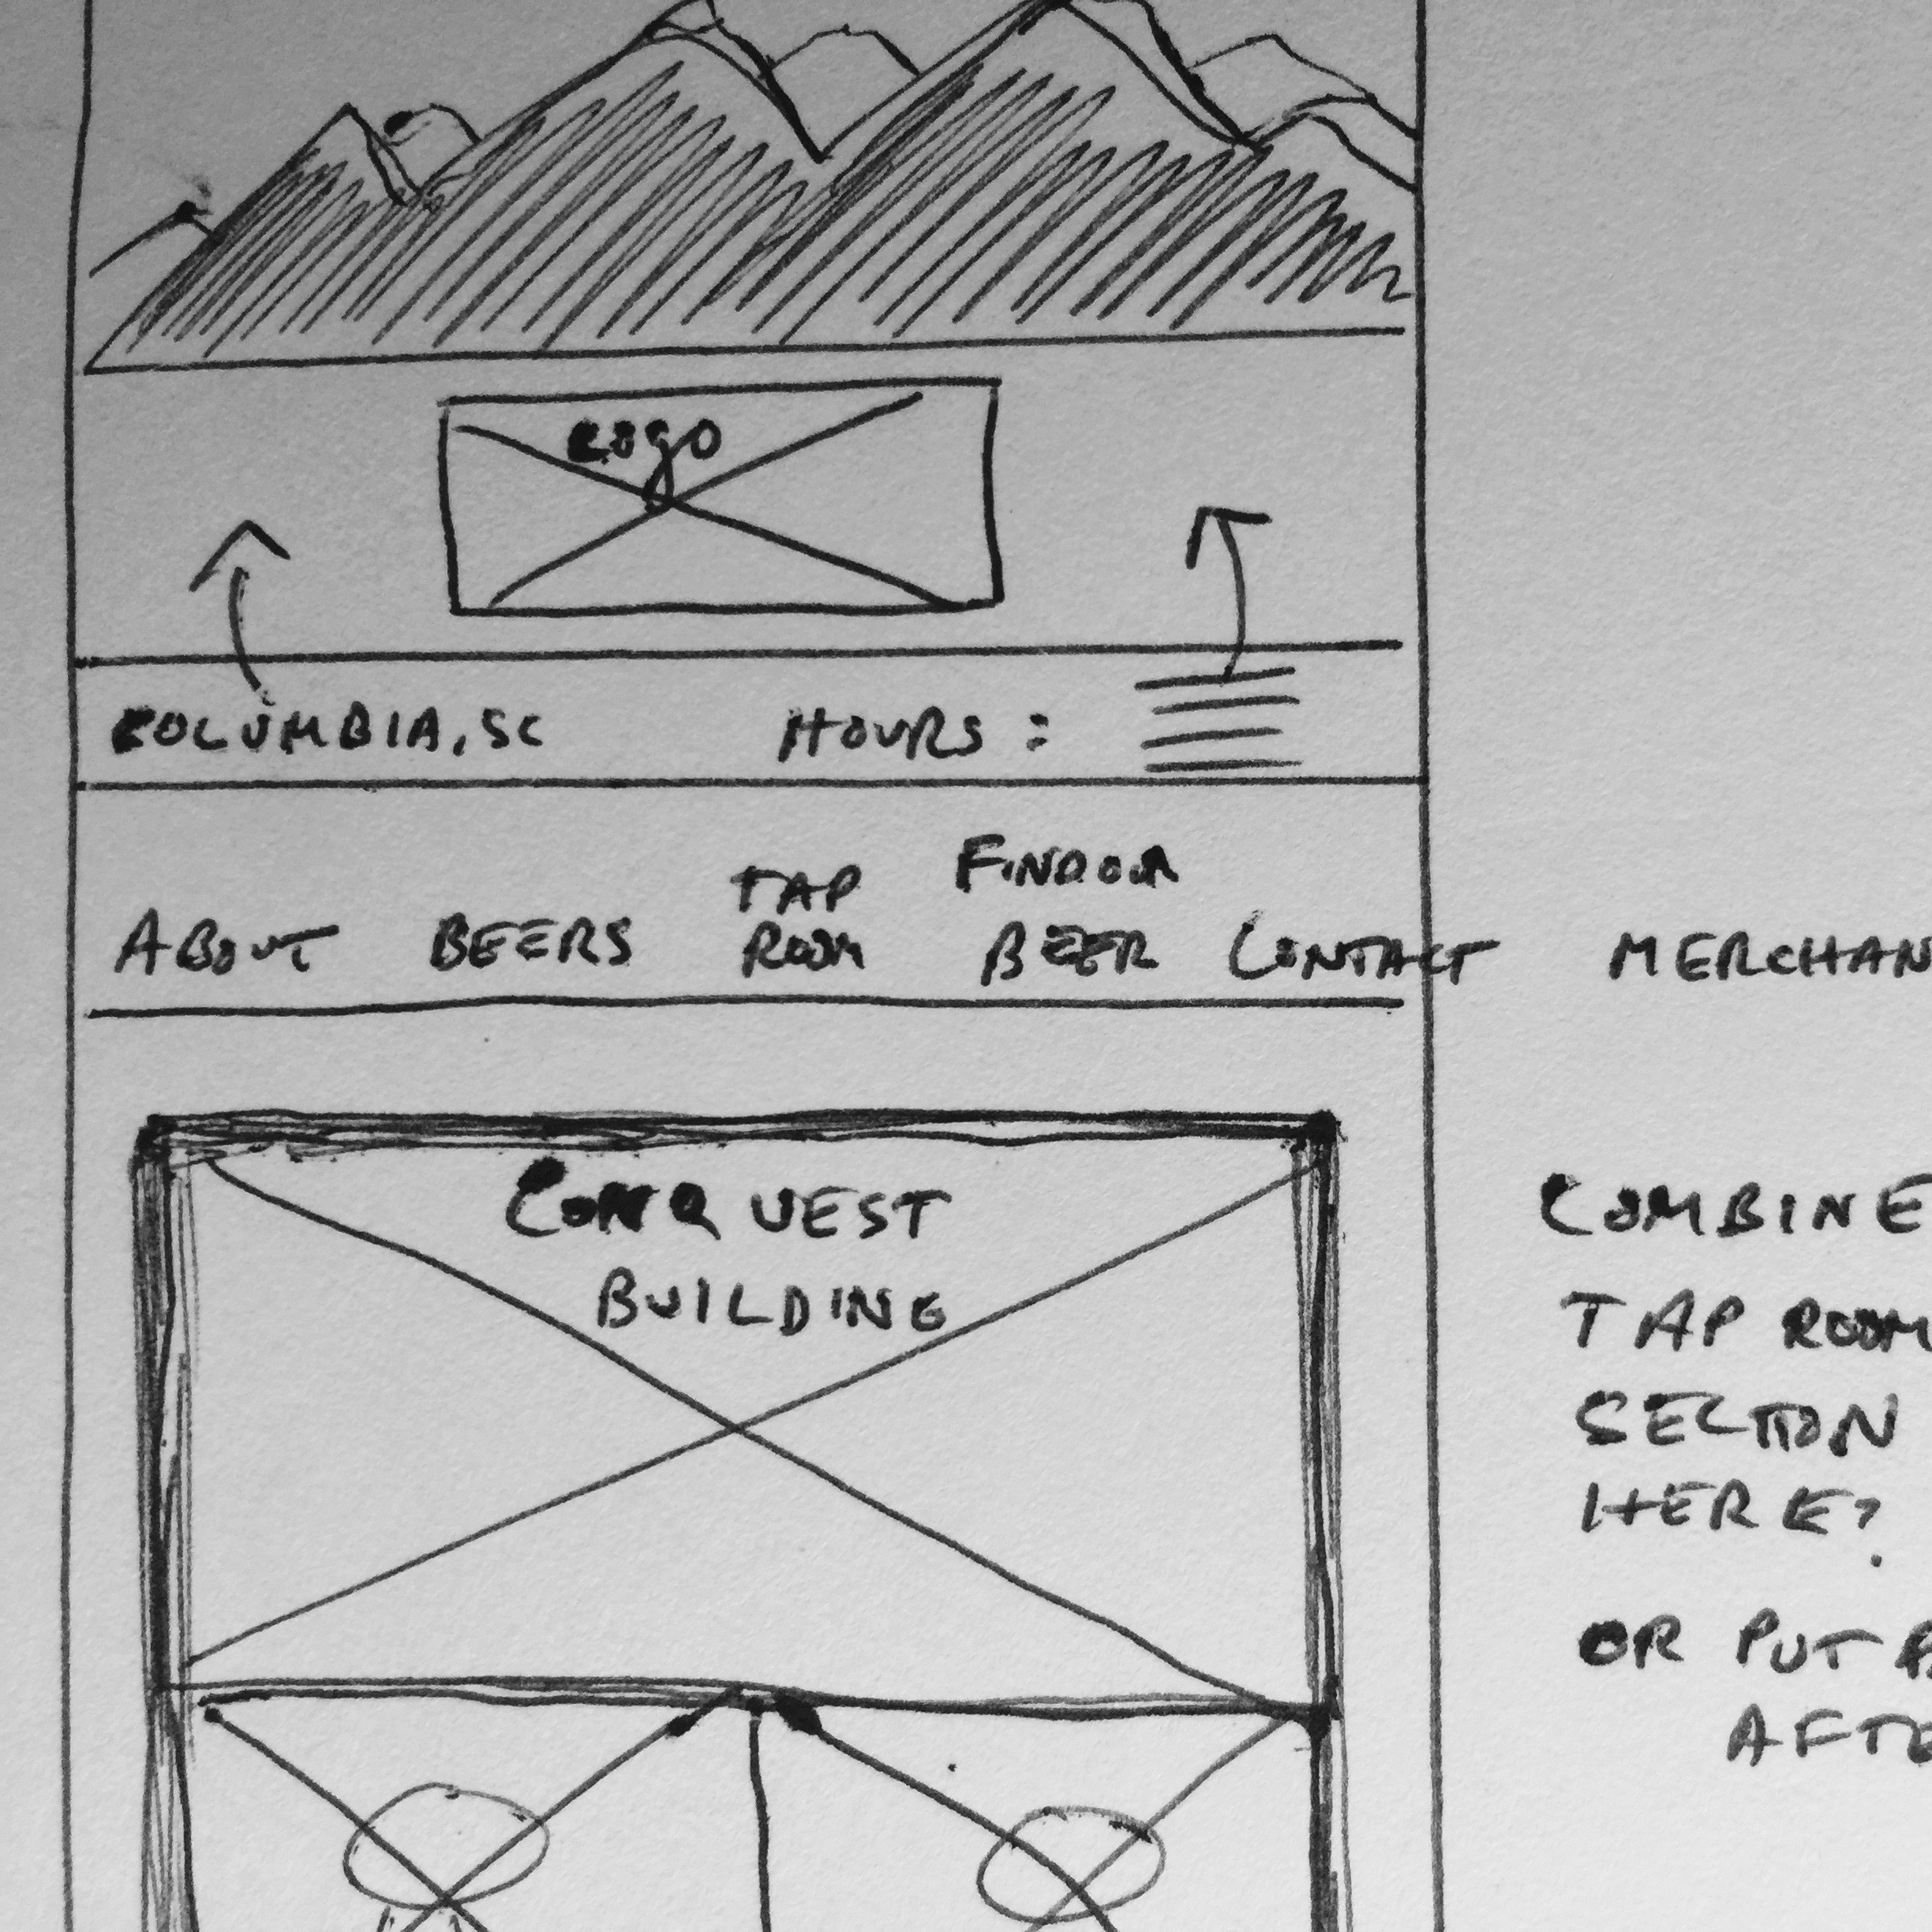 Logo
COLUMBIA, SC HOURS :
ABOUT BEERS TAP ROOM FIND OUR BEER CONTACT MERCHAN
CONQUEST
BUILDING
COMBINE
TAP ROOM
SECTION
HERE?
OR PUT
AFTE